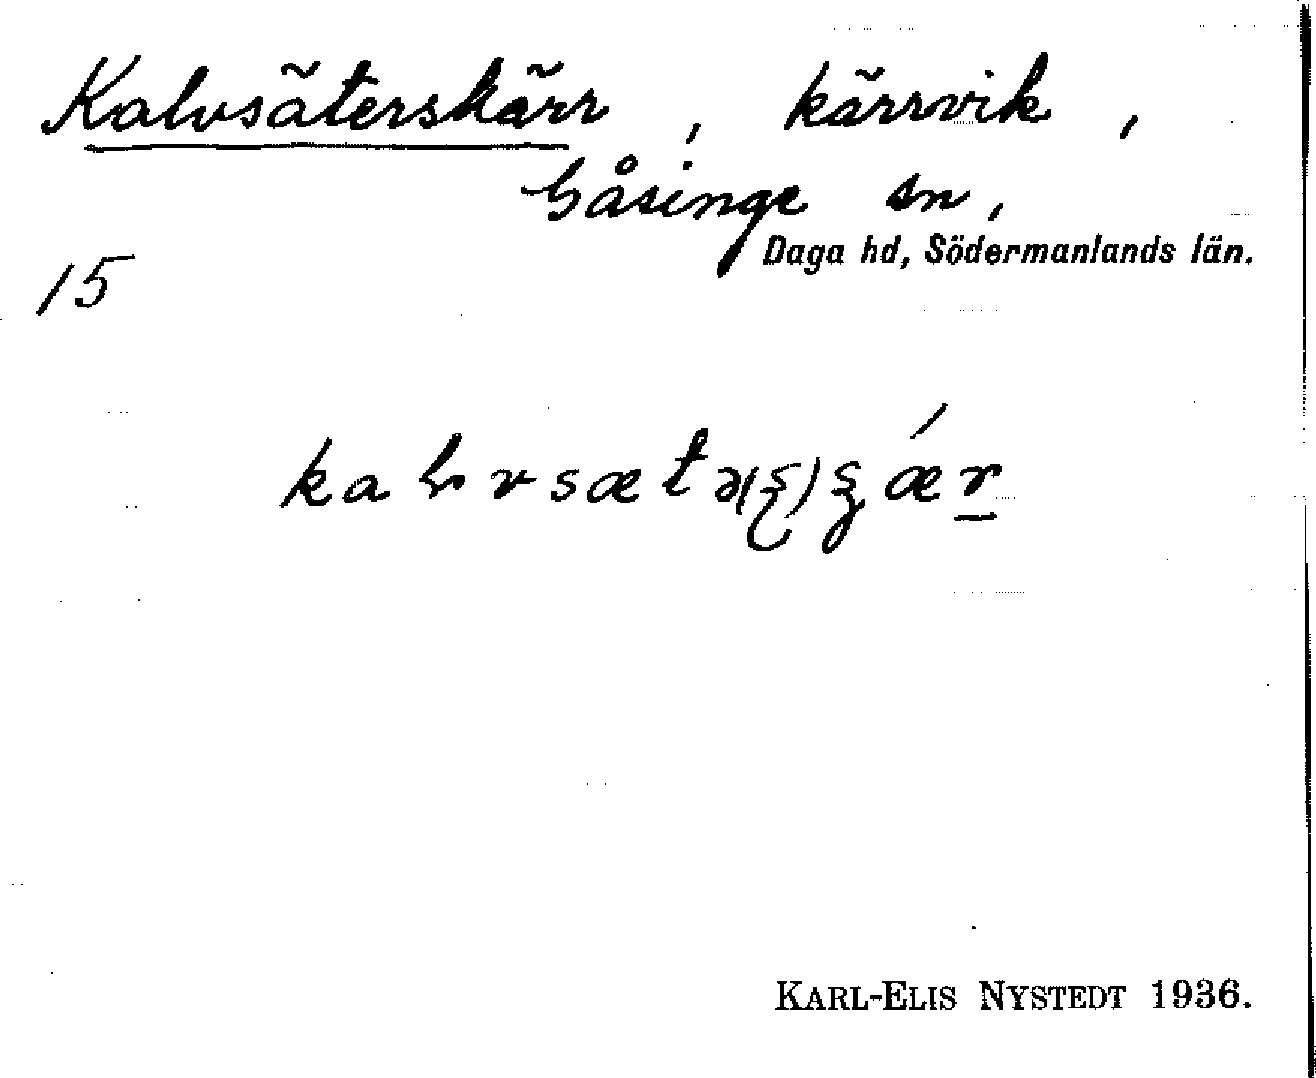 Kalvsäterskärr, kärrvik,
Gåsinge sn,
Daga hd, Södermanlands län.
15
KARL-ELIS NYSTEDT 1936.